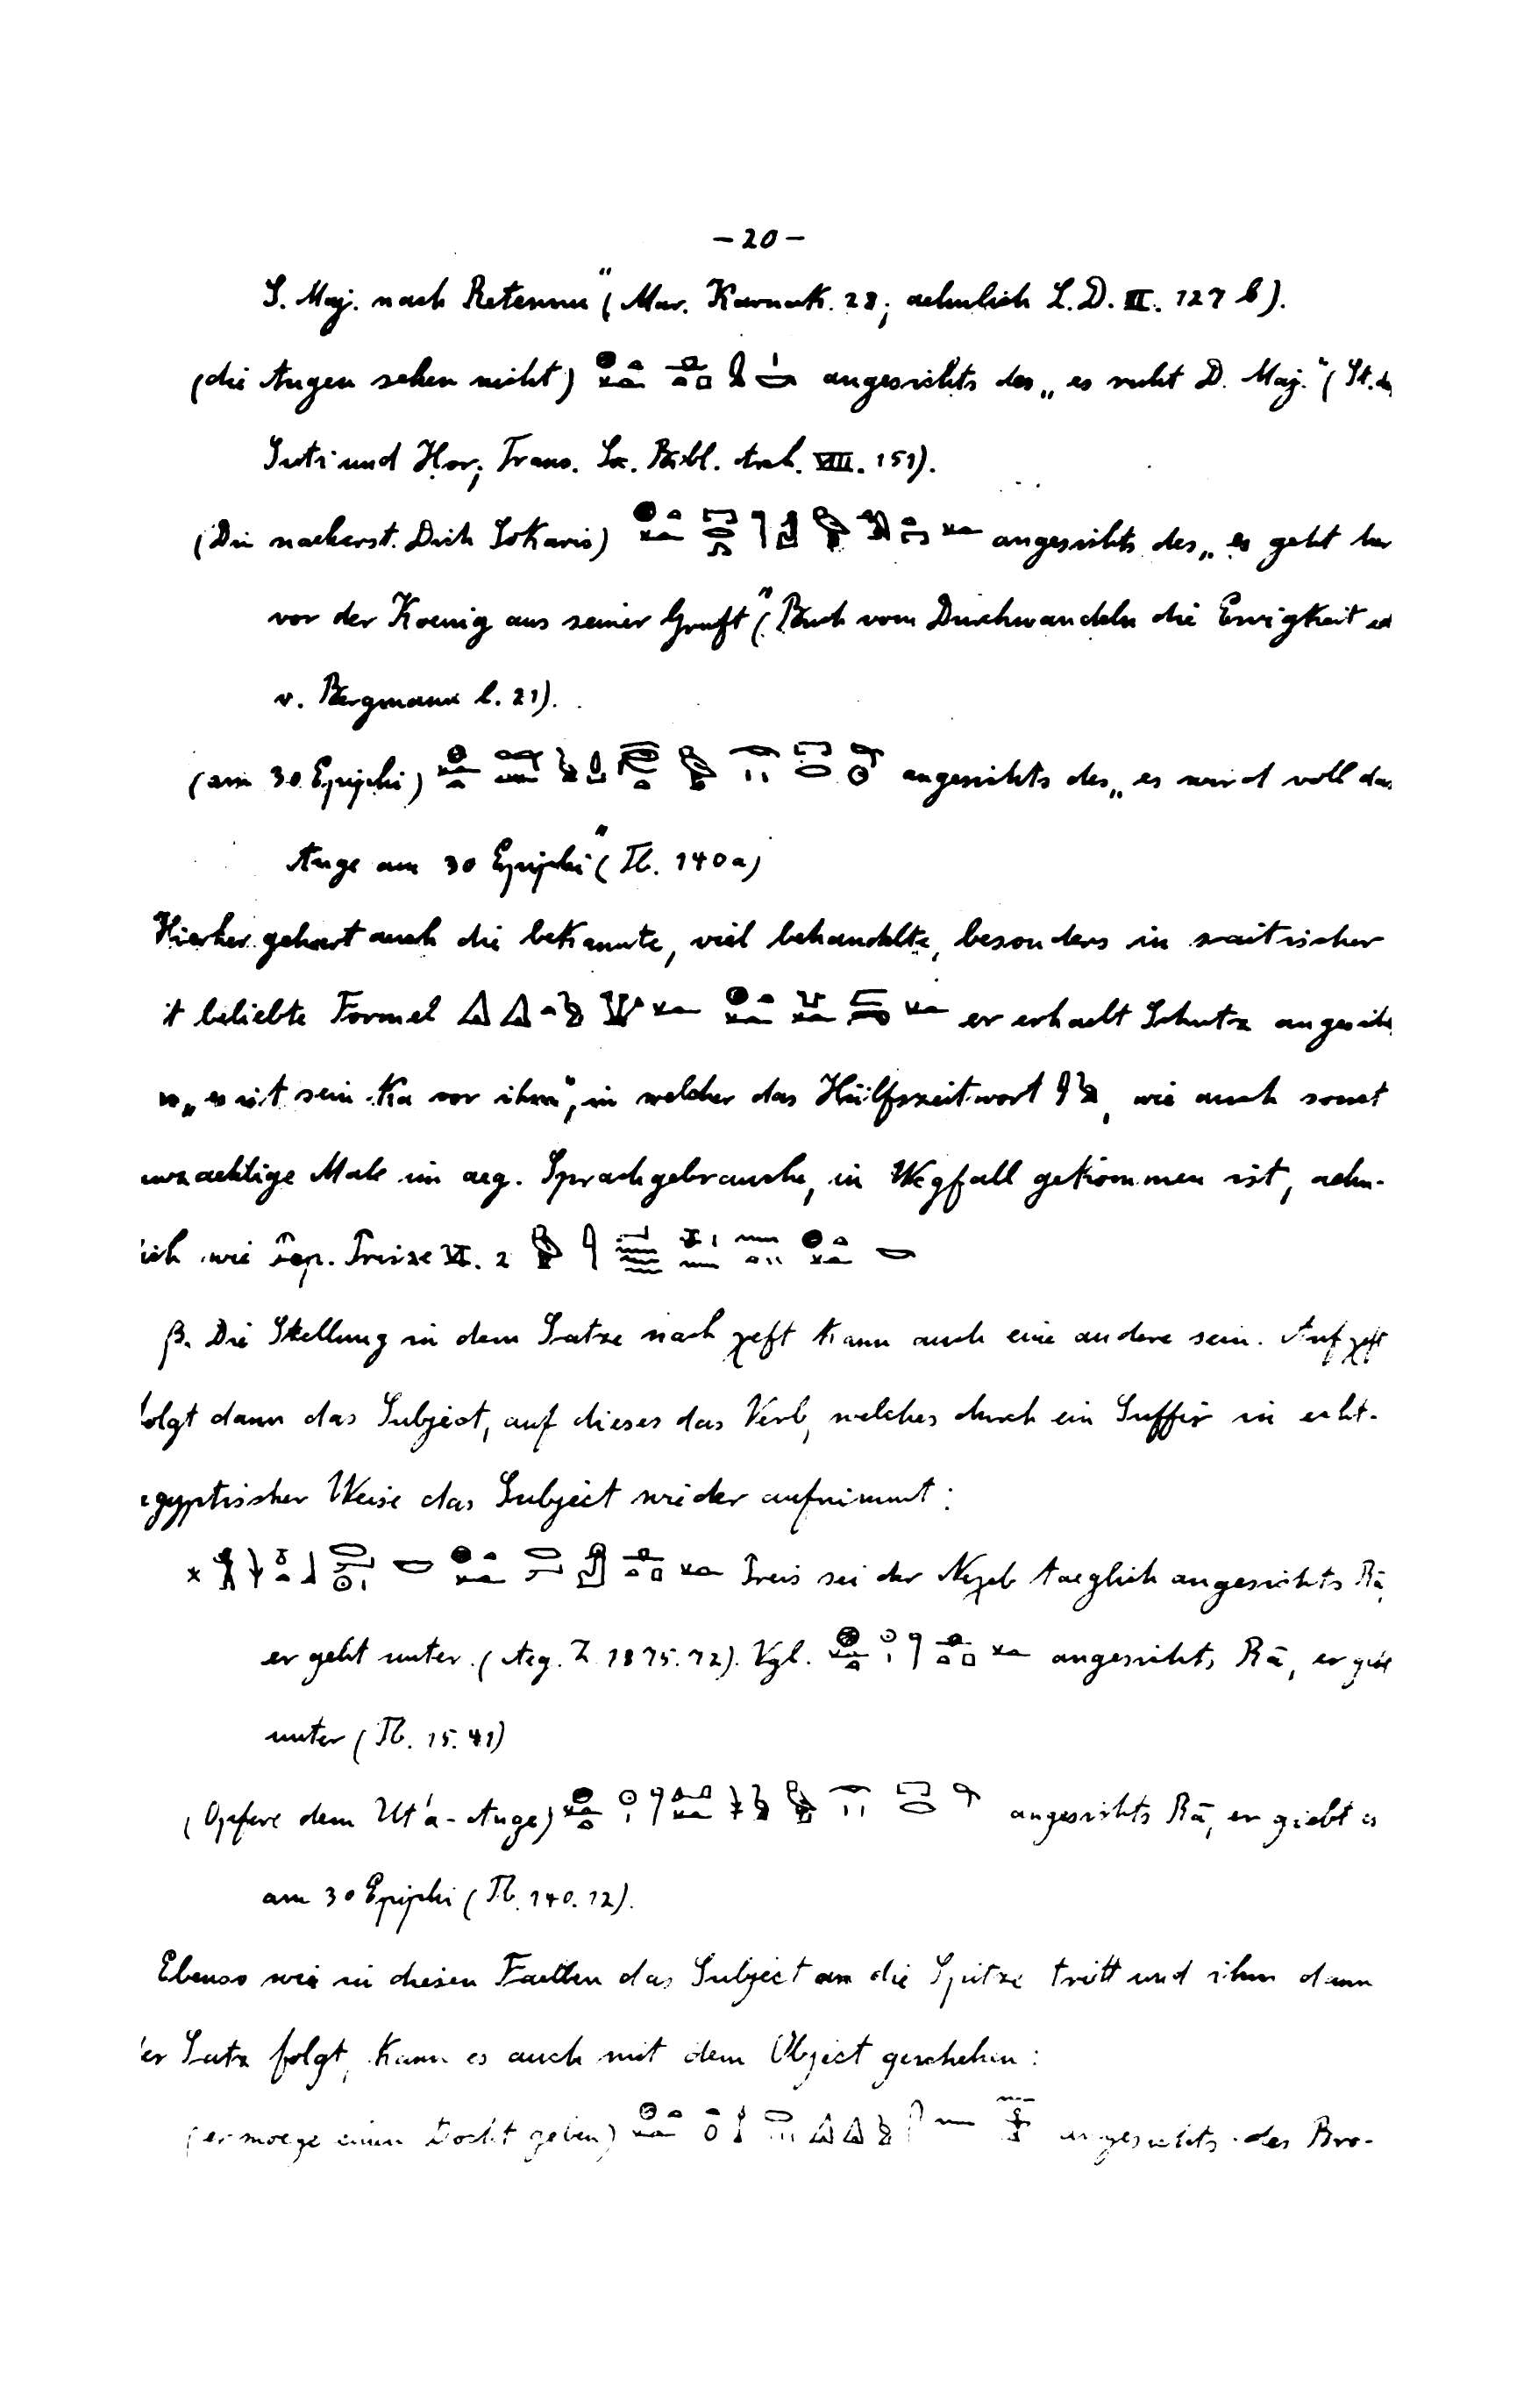 – 20 –
S. Maj. nach Retennu" (Mar. Karnak. 28; aehnlich L.D. III. 127 b).
(die Augen sehen nicht) angesichts des „es ruht D. Maj." (St. des
Suti und Hor; Trans. Soc. Bibl. Arch. VIII. 151).
(Du naeherst Dich Sokaris) angesichts des „es geht her
vor der Koenig aus seiner Gruft" (Buch vom Durchwandeln die Ewigkeit ed
v. Bergmann l. 21).
(am 30 Epiphi) angesichts des „es wird voll das
Auge am 30 Epiphi" (Tb. 140a)
Hierher gehoert auch die bekannte, viel behandelte, besonders in saitischer
it beliebte Formel er erhaelt Schutz angesichts
„es ist sein Ka vor ihm", in welcher das Hülfszeitwort , wie auch sonst
unzaehlige Male im aeg. Sprachgebrauche, in Wegfall gekommen ist, aehn-
ich wie Pap. Prisse VI. 2
β. Die Stellung in dem Satze nach χeft kann auch eine andere sein. Auf χeft
folgt dann das Subject, auf dieses das Verb, welches durch ein Suffix in echt-
egyptischer Weise das Subject wieder aufnimmt:
× Preis sei der Neχeb taeglich angesichts Rā,
er geht unter. (Aeg. Z 1875. 72). Vgl. angesichts Rā, er geht
unter (Tb. 15. 41)
(Opfere dem Ut'a-Auge) angesichts Rā, er giebt es
am 30 Epiphi (Tb. 140. 12).
Ebenso wie in diesen Faellen das Subject an die Spitze tritt und ihm dann
er Satz folgt, kann es auch mit dem Object geschehen:
(er moege einen Docht geben) angesichts des Bro-